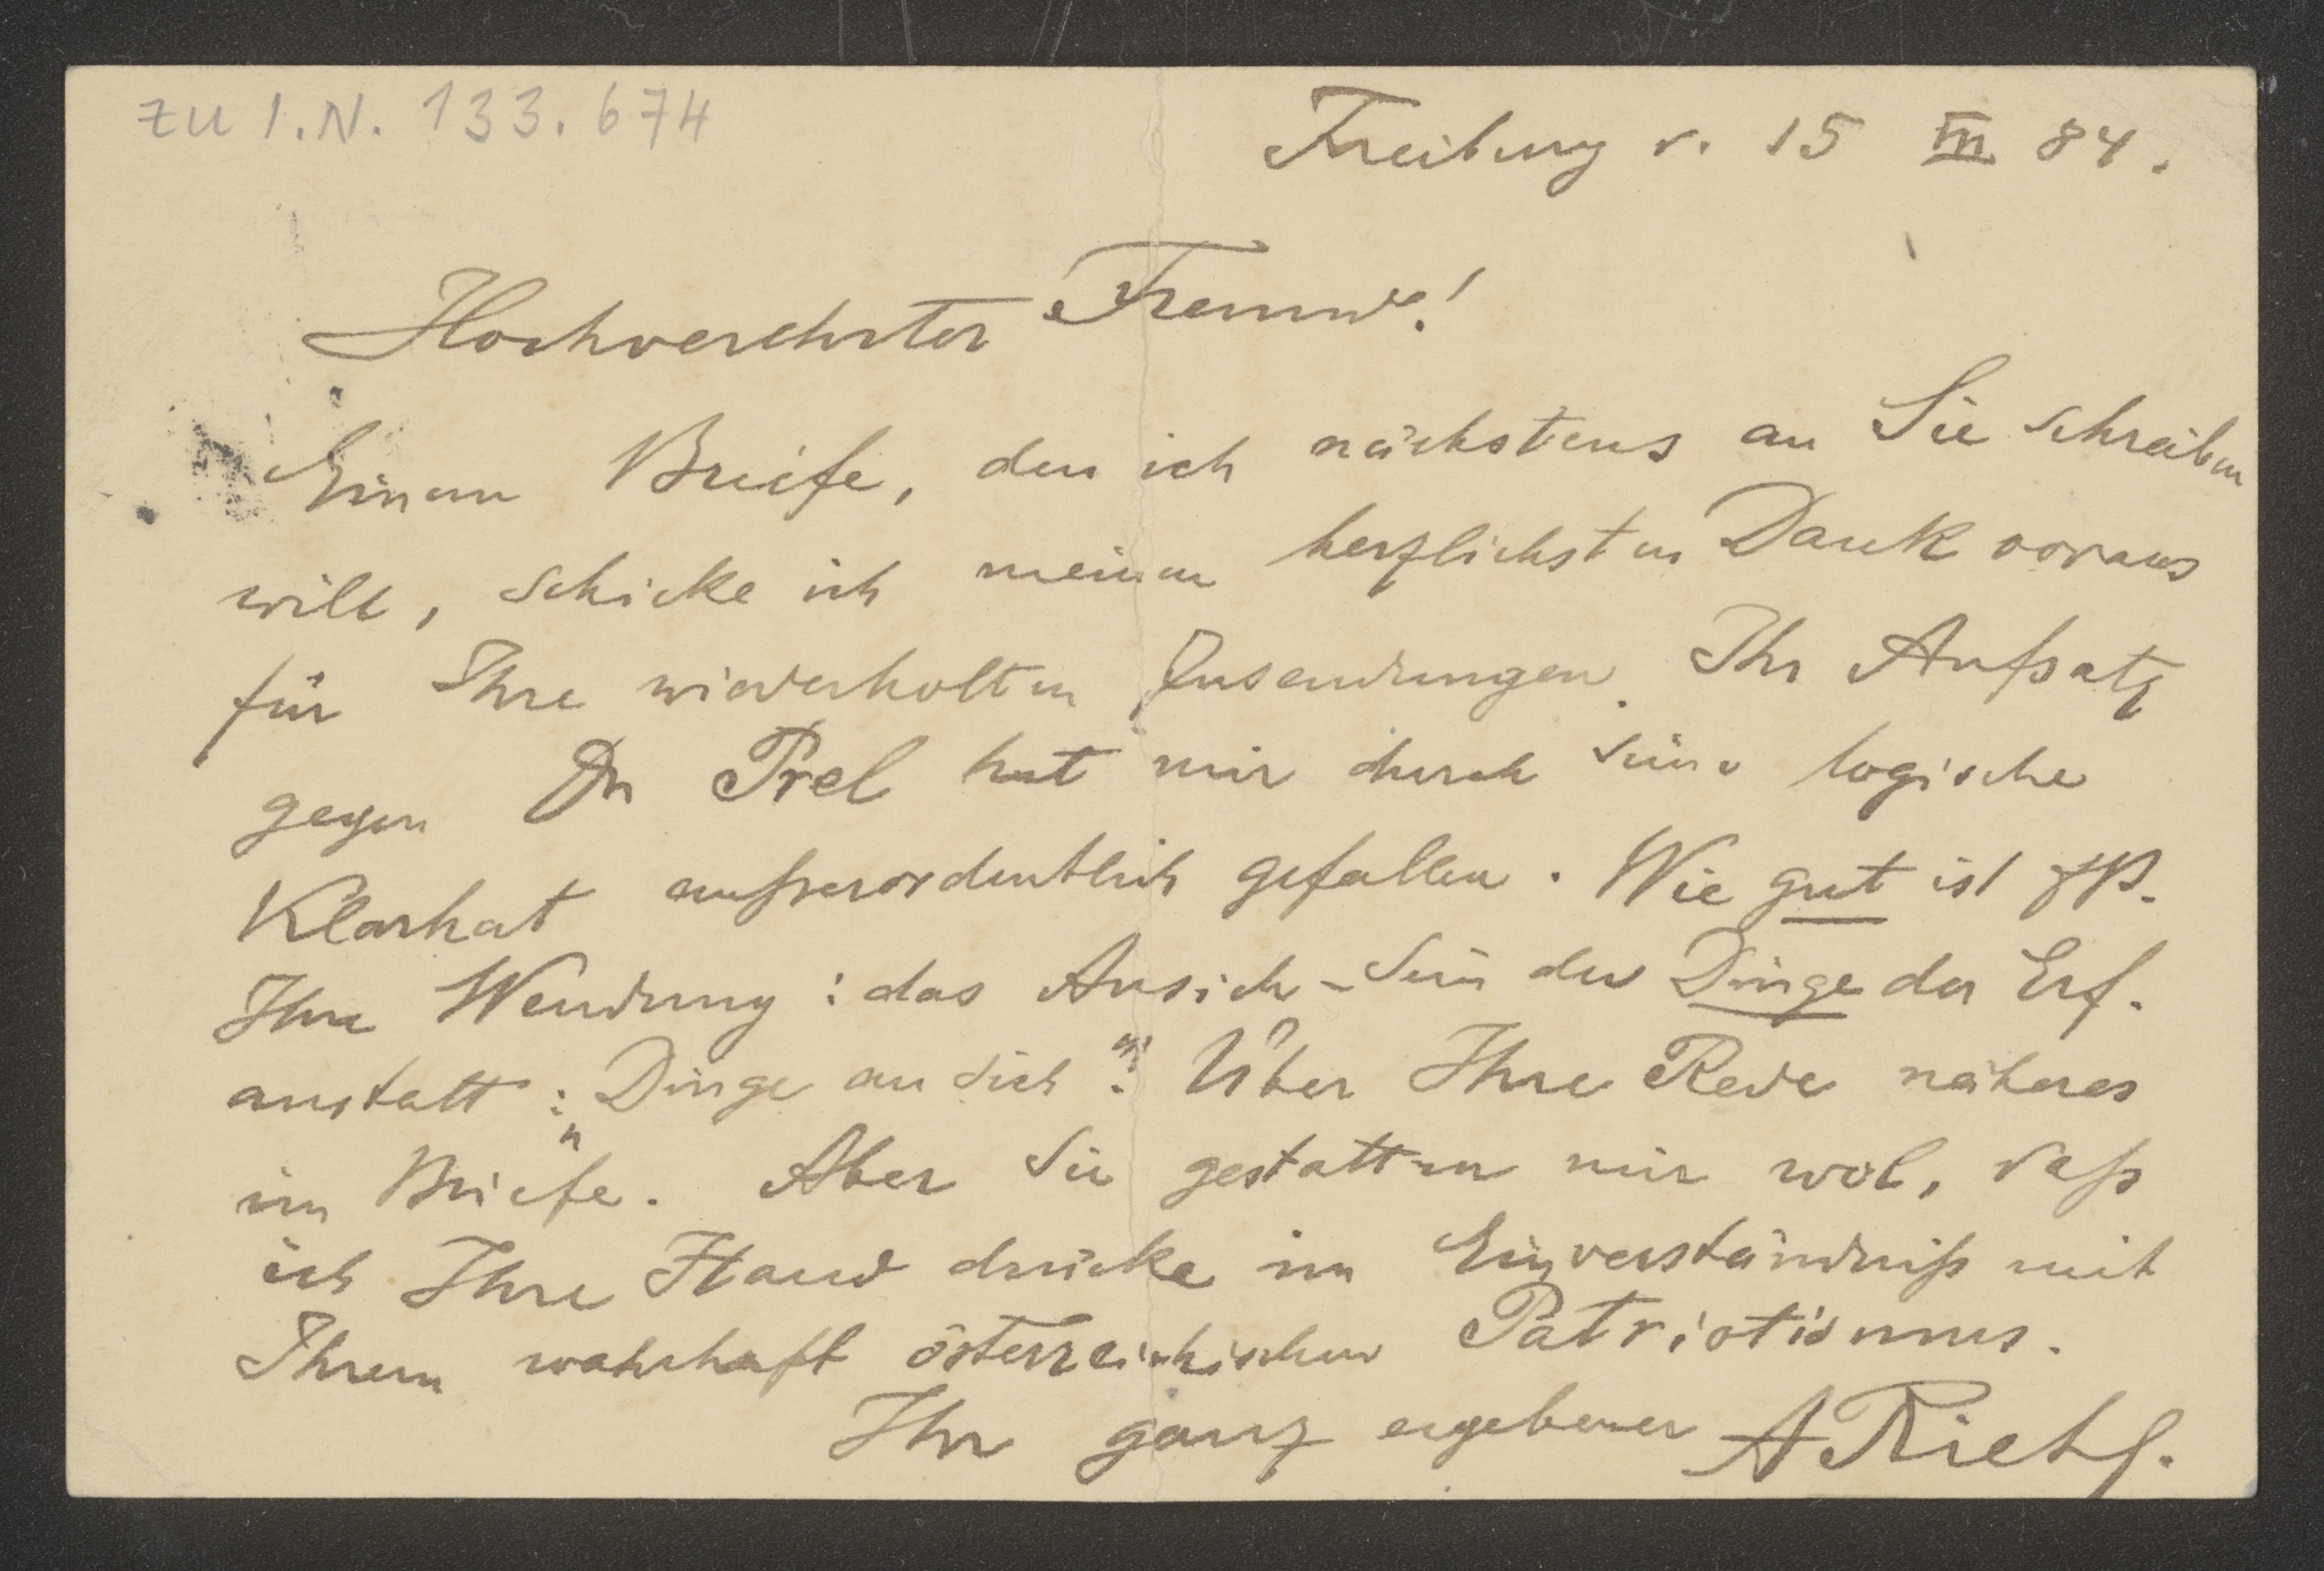 zu I.N. 133.674
Freiburg v. 15 III 84.
Hochverehrter Freund!
Einem Briefe, den ich nächstens an Sie schreiben
will, schicke ich meinen herzlichsten Dank voraus
für Ihre wiederholten Zusendungen. Ihr Aufsatz
gegen Du Prel hat mir durch seine logische
Klarhat außerordentlich gefallen. Wie gut ist
Ihre Wendung: das Ansich-Sein der Dinge der Erf.
anstatt: „Dinge an sich“. Über Ihre Rede näheres
im Briefe. Aber Sie gestatten mir wol, daß
ich Ihre Hand drücke im Einverständniß mit
Ihrem wahrhaft österreichischen Patriotismus.
Ihr ganz ergebener ARiehl.